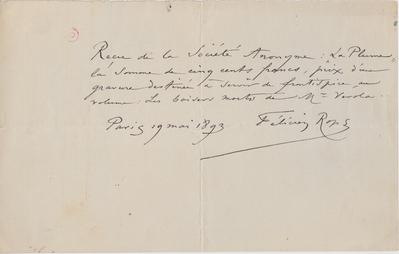 Recu de la Société Anonyme : La Plume,
la somme de cinq cents francs, prix d'une
gravure destinée à servir de frontispice au
volume : Les baisers morts de Mr
Paris 19 mai 1893 Félicien Rops